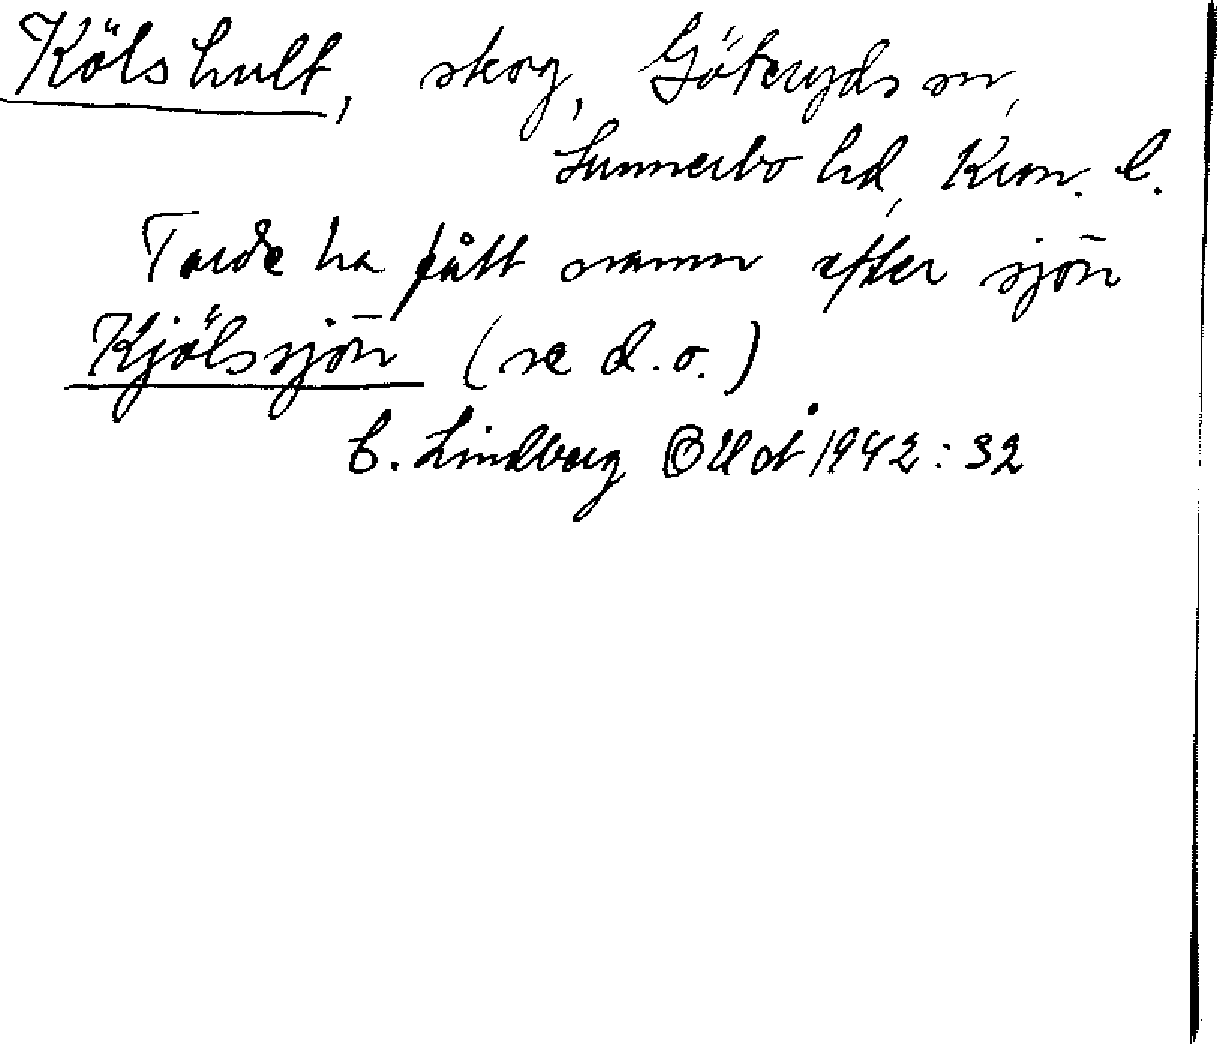 Kölshult, skog, Göteryds sn,
Sunnerbo hd, Kron. l.
Torde ha fått namn efter sjön
Kjölssjön (se d.o.)
C. Lindberg 1942:32